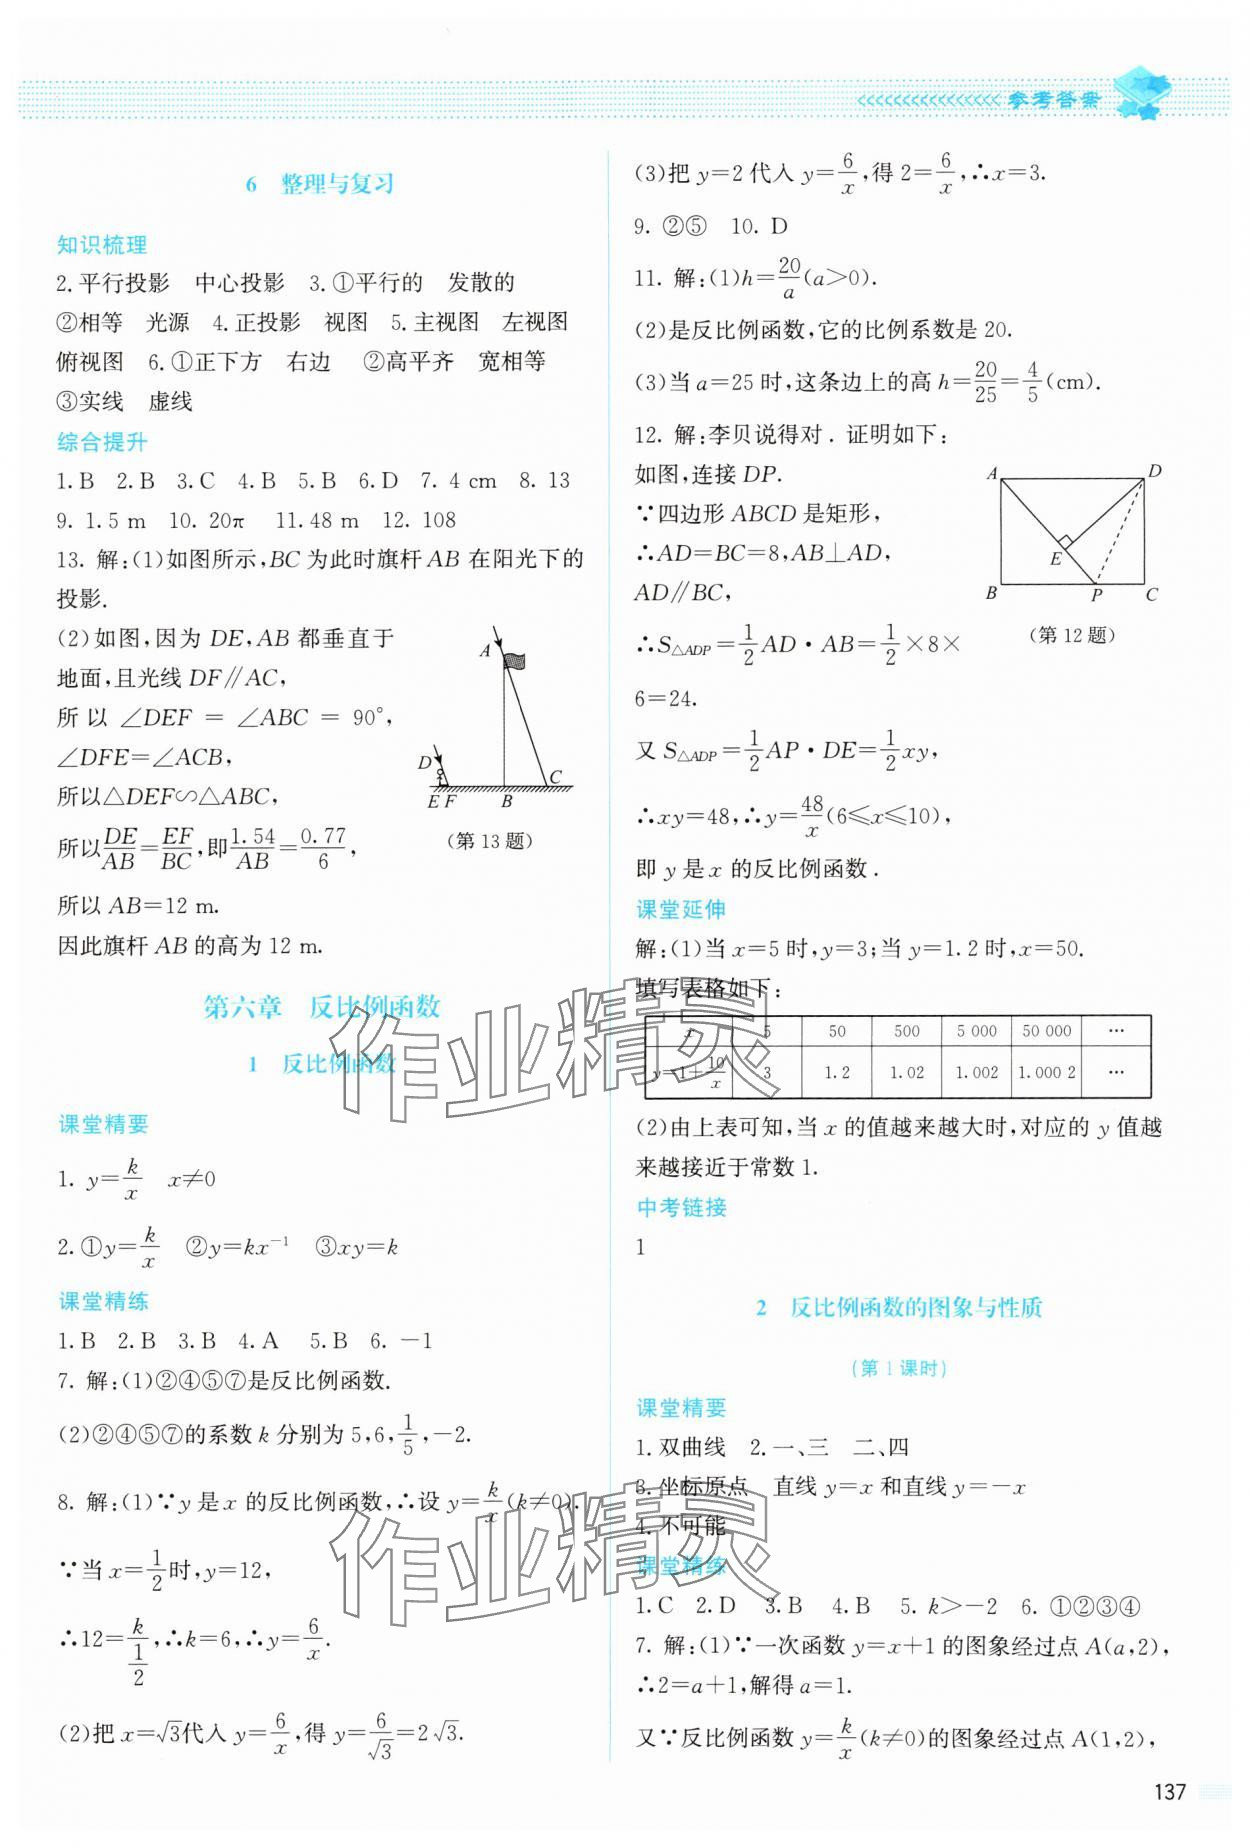 参考答案
6 整理与复习
知识梳理
2.平行投影 中心投影 3.①平行的 发散的
②相等 光源 4.正投影 视图 5.主视图 左视图
俯视图 6.①正下方 右边 ②高平齐 宽相等
③实线 虚线
综合提升
1.B 2.B 3.C 4.B 5.B 6.D 7.4 cm 8.13
9.1.5 m 10.20π 11.48 m 12.108
13.解:(1)如图所示,BC为此时旗杆AB在阳光下的
投影.
(2)如图,因为DE,AB都垂直于
地面,且光线DF∥AC,
所以∠DEF=∠ABC=90°,
∠DFE=∠ACB,
所以△DEF∽△ABC,
所以DE/AB=EF/BC,即1.54/AB=0.77/6,
所以AB=12 m.
因此旗杆AB的高为12 m.
A
D
E F
B
C
(第13题)
第六章 反比例函数
1 反比例函数
课堂精要
1. y=k/x x≠0
2.①y=k/x ②y=kx⁻¹ ③xy=k
课堂精练
1.B 2.B 3.B 4.A 5.B 6.-1
7.解:(1)②④⑤⑦是反比例函数.
(2)②④⑤⑦的系数k分别为5,6,1/5,-2.
8.解:(1)∵y是x的反比例函数,∴设y=k/x(k≠0).
∵当x=1/2时,y=12,
∴12=k/(1/2),∴k=6,∴y=6/x.
(2)把x=√3代入y=6/x,得y=6/√3=2√3.
(3)把y=2代入y=6/x,得2=6/x,∴x=3.
9.②⑤ 10.D
11.解:(1)h=20/a(a>0).
(2)是反比例函数,它的比例系数是20.
(3)当a=25时,这条边上的高h=20/25=4/5(cm).
12.解:李贝说得对.证明如下:
如图,连接DP.
∵四边形ABCD是矩形,
∴AD=BC=8,AB⊥AD,
AD∥BC,
∴S△ADP=1/2AD·AB=1/2×8×
6=24.
又S△ADP=1/2AP·DE=1/2xy,
∴xy=48,∴y=48/x(6≤x≤10),
即y是x的反比例函数.
A
D
E
B
P
C
(第12题)
课堂延伸
解:(1)当x=5时,y=3;当y=1.2时,x=50.
填写表格如下:
x 5 50 500 5 000 50 000 …
y=1+10/x 3 1.2 1.02 1.002 1.000 2 …
(2)由上表可知,当x的值越来越大时,对应的y值越
来越接近于常数1.
中考链接
1
2 反比例函数的图象与性质
(第1课时)
课堂精要
1.双曲线 2.一、三 二、四
3.坐标原点 直线y=x和直线y=-x
4.不可能
课堂精练
1.C 2.D 3.B 4.B 5.k>-2 6.①②③④
7.解:(1)∵一次函数y=x+1的图象经过点A(a,2),
∴2=a+1,解得a=1.
又∵反比例函数y=k/x(k≠0)的图象经过点A(1,2),
137
作业精灵
作业精灵